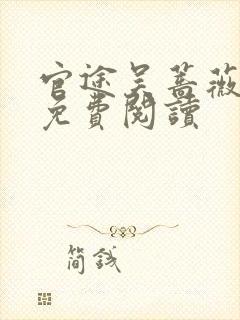 官途吴蔷薇
免費閱讀
簡錢